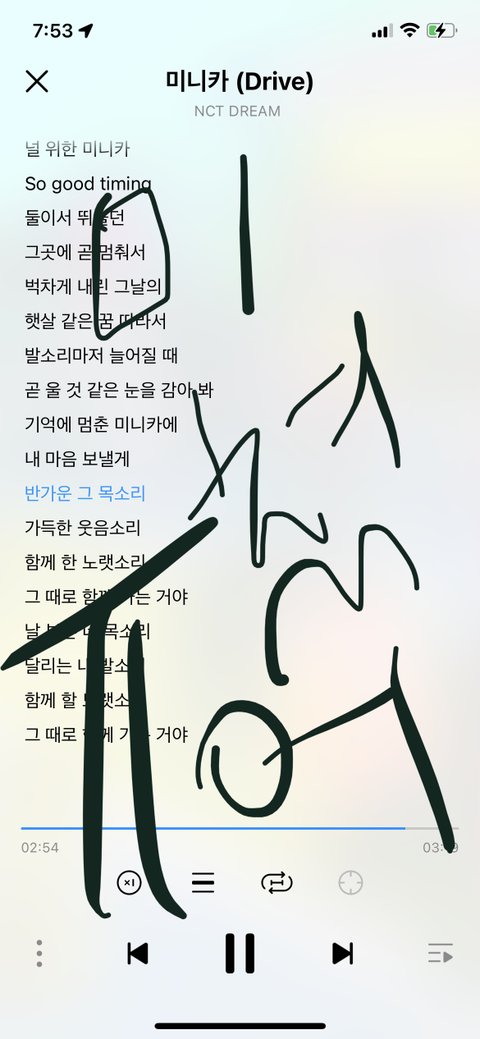 7:53
미니카 (Drive)
NCT DREAM
널 위한 미니카
So good timing
둘이서
그곳에 곧 멈춰서
벅차게 내린 그날의
햇살 같은 꿈 따라서
발소리마저 늘어질 때
곧 울 것 같은 눈을 감아 봐
기억에 멈춘 미니카에
내 마음 보낼게
반가운 그 목소리
가득한 웃음소리
함께 한 노랫소리
그 때로 함께 가는 거야
날 목소리
달리는 발소리
함께 할
그 때로 함께 거야
02:54